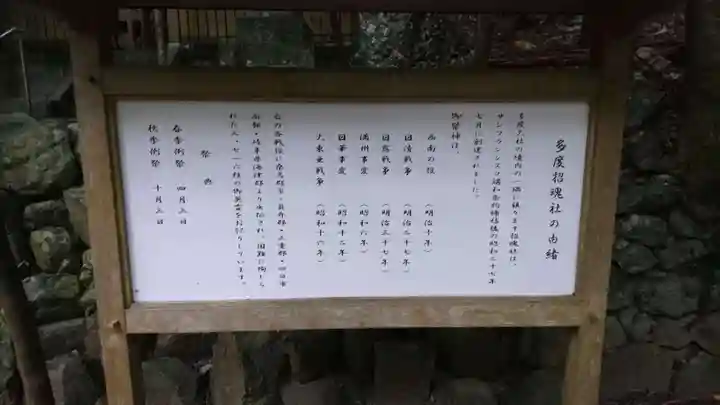 多度招魂社の由緒
多度大社の境内の一隅に鎮ります招魂社は、
サンフランシスコ講和条約締結後の昭和二十七年
七月に創建されました。
御祭神は、
西南の役 (明治十年)
日清戦争 (明治二十七年)
日露戦争 (明治三十七年)
満州事変 (昭和六年)
日華事変 (昭和十二年)
大東亜戦争 (昭和十六年)
右の各戦役に桑名郡市・員弁郡・三重郡・四日市
市・岐阜県海津郡より出征され、国難に殉じら
れた三、七一六柱の御英霊をお祀りしています。
祭典
春季例祭 四月五日
秋季例祭 十月三日